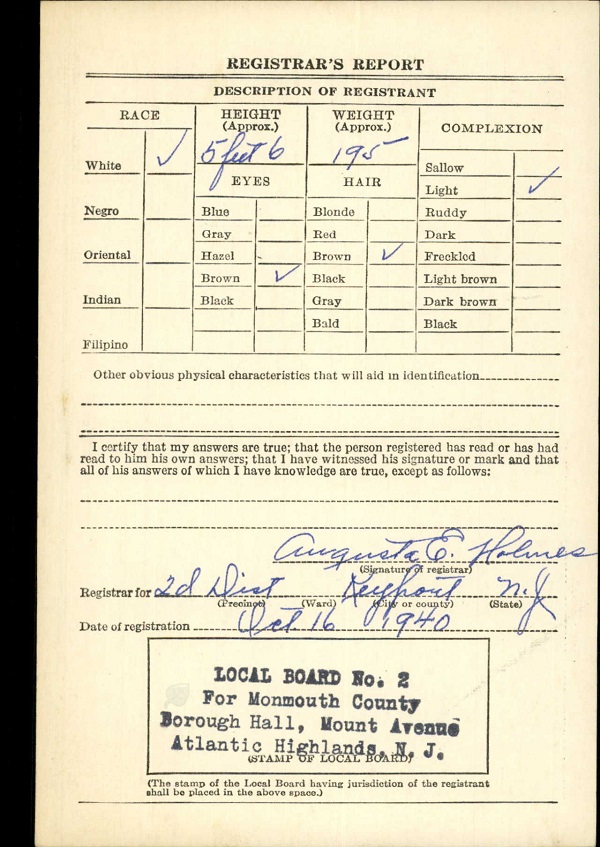 REGISTRAR'S REPORT
DESCRIPTION OF REGISTRANT
RACE
HEIGHT
(Approx.)
WEIGHT
(Approx.)
COMPLEXION
White ✓
5 feet 6
195
Sallow
EYES
HAIR
Light ✓
Negro
Blue
Blonde
Ruddy
Gray
Red
Dark
Oriental
Hazel
Brown ✓
Freckled
Brown ✓
Black
Light brown
Indian
Black
Gray
Dark brown
Bald
Black
Filipino
Other obvious physical characteristics that will aid in identification
I certify that my answers are true; that the person registered has read or has had
read to him his own answers; that I have witnessed his signature or mark and that
all of his answers of which I have knowledge are true, except as follows:
Augusta E. Holmes
(Signature of registrar)
Registrar for 2d Dist Keyport N.J
(Precinct) (Ward) (City or county) (State)
Date of registration Oct. 16 1940
LOCAL BOARD No. 2
For Monmouth County
Borough Hall, Mount Avenue
Atlantic Highlands, N. J.
(STAMP OF LOCAL BOARD)
(The stamp of the Local Board having jurisdiction of the registrant
shall be placed in the above space.)